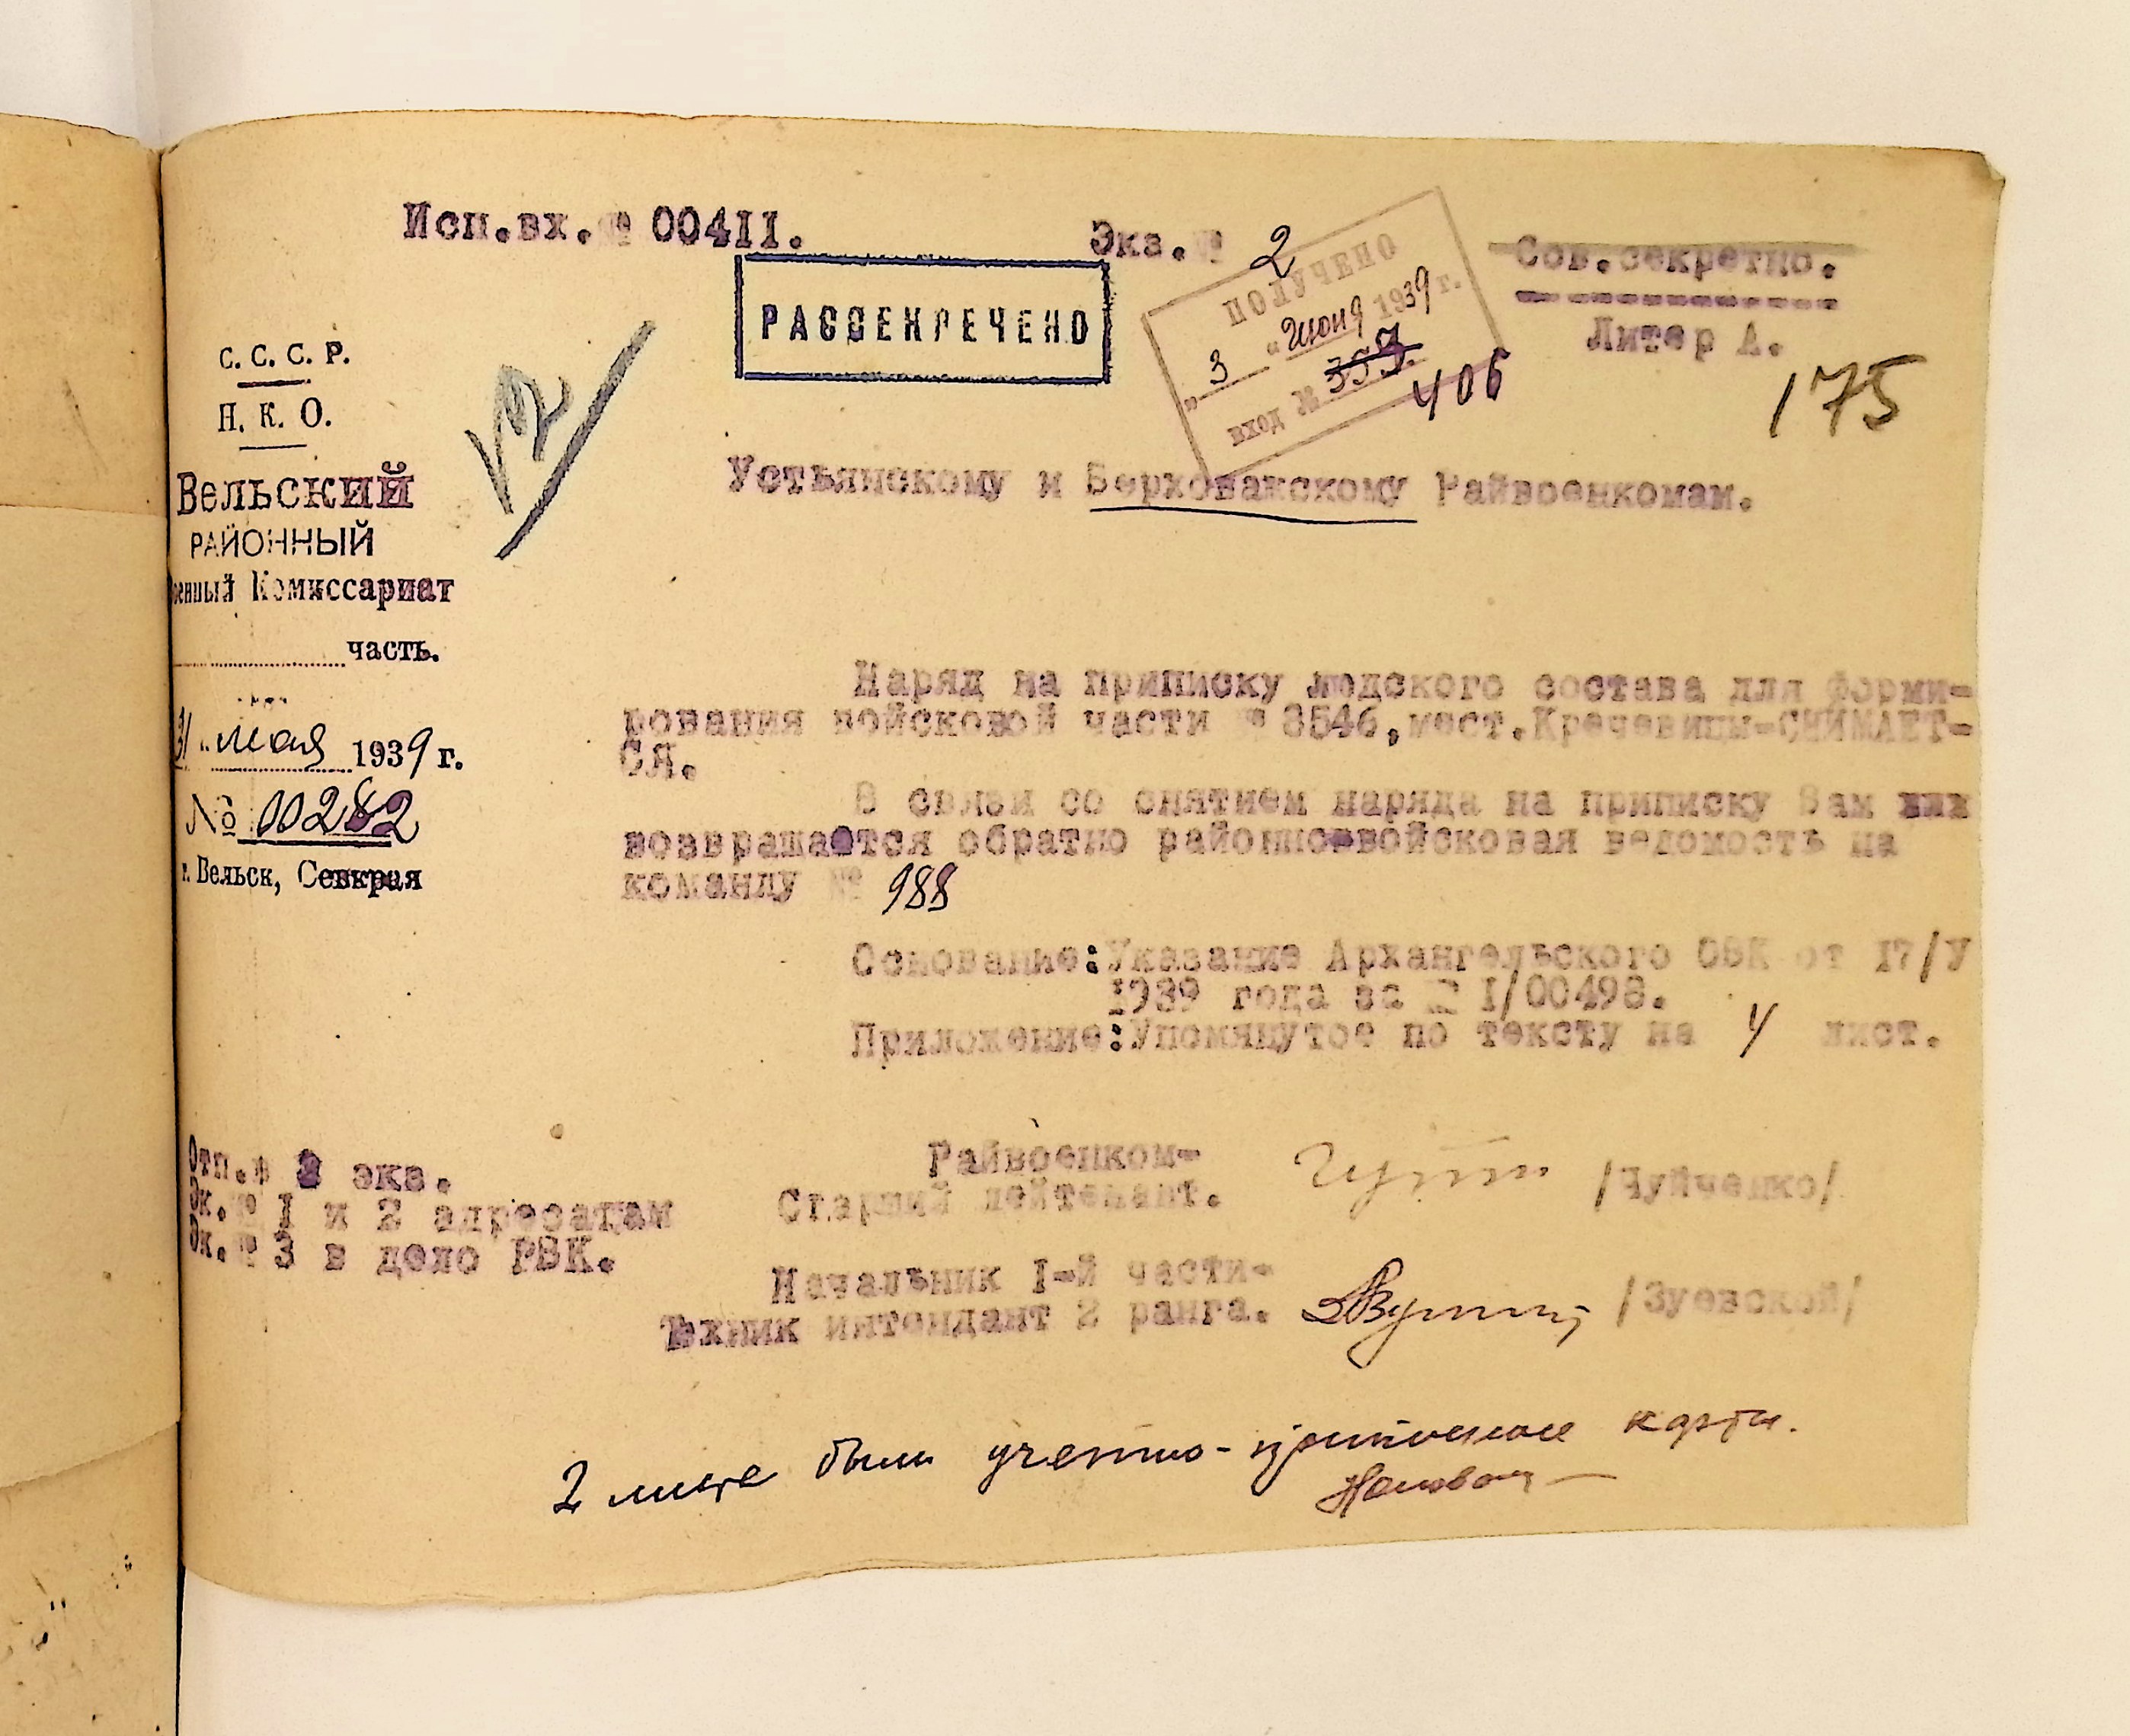 Исп.вх.№ 00411.
Экз.№ 2
Сов.секретно.
Литер А.
РАССЕКРЕЧЕНО
ПОЛУЧЕНО
"3" Июня 1939 г.
вход № 357.
406
175
С. С. С. Р.
Н. К. О.
Вельский
РАЙОННЫЙ
военный Комиссариат
часть.
31 " мая 1939 г.
№ 00282
г. Вельск, Севкрая
Устьянскому и Верховажскому Райвоенкомам.
Наряд на приписку людского состава для форми-
рования войсковой части № 3546, мест.Кречевицы-СНИМАЕТ-
СЯ.
В связи со снятием наряда на приписку Вам
возвращается обратно районновойсковая ведомость на
команду № 988
Основание:Указание Архангельского ОВК от 17/У
1939 года за № 1/00498.
Приложение:Упомянутое по тексту на 4 лист.
Отп.в 3 экз.
Эк.№ 1 и 2 адресатам
Эк.№ 3 в дело РВК.
Райвоенком-
Старший лейтенант. /Чуйченко/
Начальник 1-й части-
Техник интендант 2 ранга. /Зуевской/
2 листа были учетно-призывные карты.